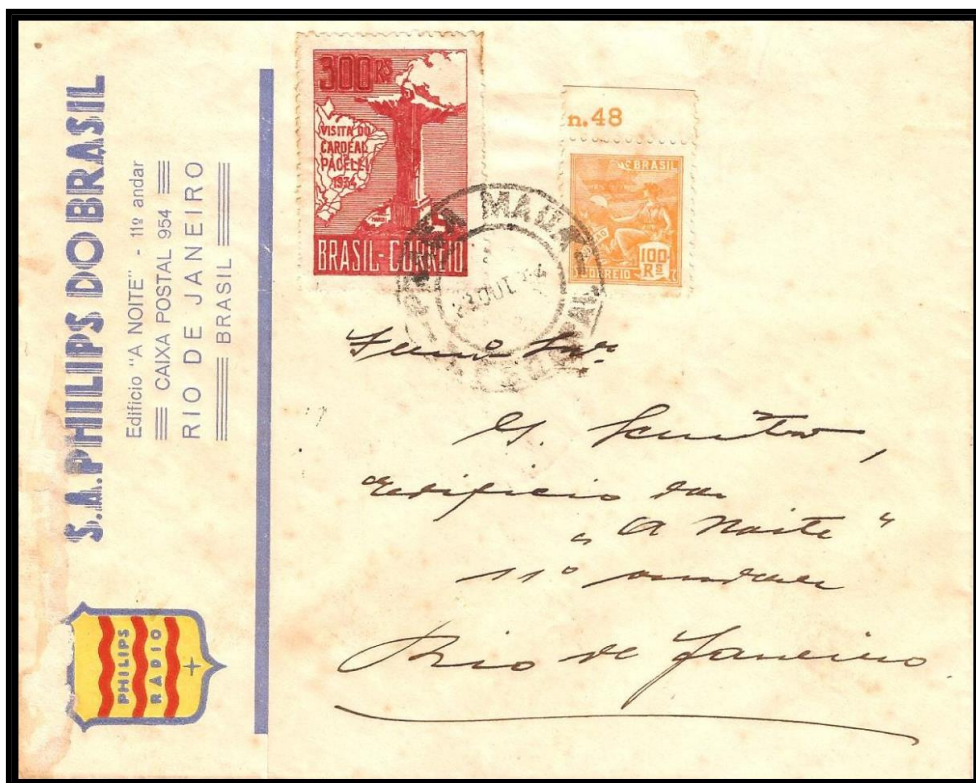 S.A. PHILIPS DO BRASIL
Edificio "A NOITE" - 11º andar
CAIXA POSTAL 954
RIO DE JANEIRO
BRASIL
PHILIPS
RADIO
300 RS
VISITA DO
CARDEAL
PACELLI
1934
BRASIL-CORREIO
n.48
BRASIL
CORREIO
100
RS
MAUA
23 OUT
Edificio da
"A Noite"
11º andar
Rio de Janeiro